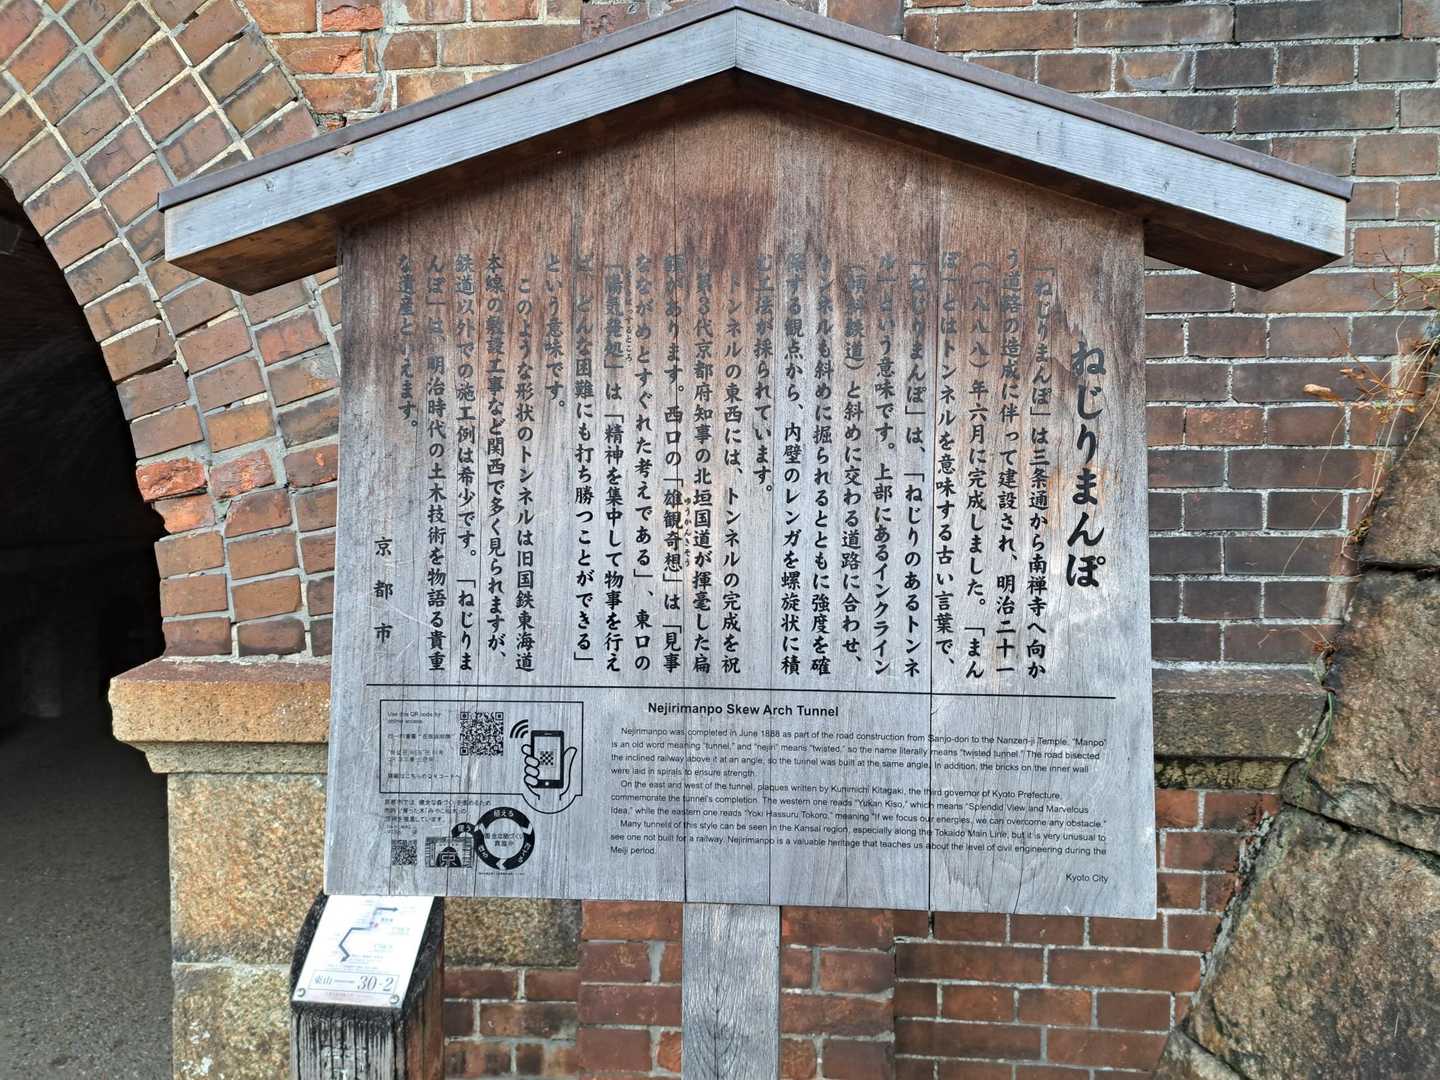 ねじりまんぽ
「ねじりまんぽ」は三条通から南禅寺へ向か
う道路の造成に伴って建設され、明治二十一
（一八八八）年六月に完成しました。「まん
ぽ」とはトンネルを意味する古い言葉で、
「ねじりまんぽ」は、「ねじりのあるトンネ
ル」という意味です。上部にあるインクライン
（傾斜鉄道）と斜めに交わる道路に合わせ、
トンネルも斜めに掘られるとともに強度を確
保する観点から、内壁のレンガを螺旋状に積
む工法が採られています。
トンネルの東西には、トンネルの完成を祝
い第3代京都府知事の北垣国道が揮毫した扁
額があります。西口の「雄観奇想」は「見事
ゆうかんきそう
なながめとすぐれた考えである」、東口の
「陽気発処」は「精神を集中して物事を行え
はっするところ
ば、どんな困難にも打ち勝つことができる」
という意味です。
このような形状のトンネルは旧国鉄東海道
本線の敷設工事など関西で多く見られますが、
鉄道以外での施工例は希少です。「ねじりま
んぽ」は、明治時代の土木技術を物語る貴重
な遺産といえます。
京都市
Nejirimanpo Skew Arch Tunnel
Nejirimanpo was completed in June 1888 as part of the road construction from Sanjo-dori to the Nanzen-ji Temple. "Manpo"
is an old word meaning "tunnel," and "nejiri" means "twisted," so the name literally means "twisted tunnel." The road bisected
the inclined railway above it at an angle, so the tunnel was built at the same angle. In addition, the bricks on the inner wall
were laid in spirals to ensure strength.
On the east and west of the tunnel, plaques written by Kunimichi Kitagaki, the third governor of Kyoto Prefecture,
commemorate the tunnel's completion. The western one reads "Yukan Kiso," which means "Splendid View and Marvelous
Idea," while the eastern one reads "Yoki Hassuru Tokoro," meaning "If we focus our energies, we can overcome any obstacle."
Many tunnels of this style can be seen in the Kansai region, especially along the Tokaido Main Line, but it is very unusual to
see one not built for a railway. Nejirimanpo is a valuable heritage that teaches us about the level of civil engineering during the
Meiji period.
Kyoto City
Use this QR code for
詳細はこちらのQRコードへ
植える
東山 30-2